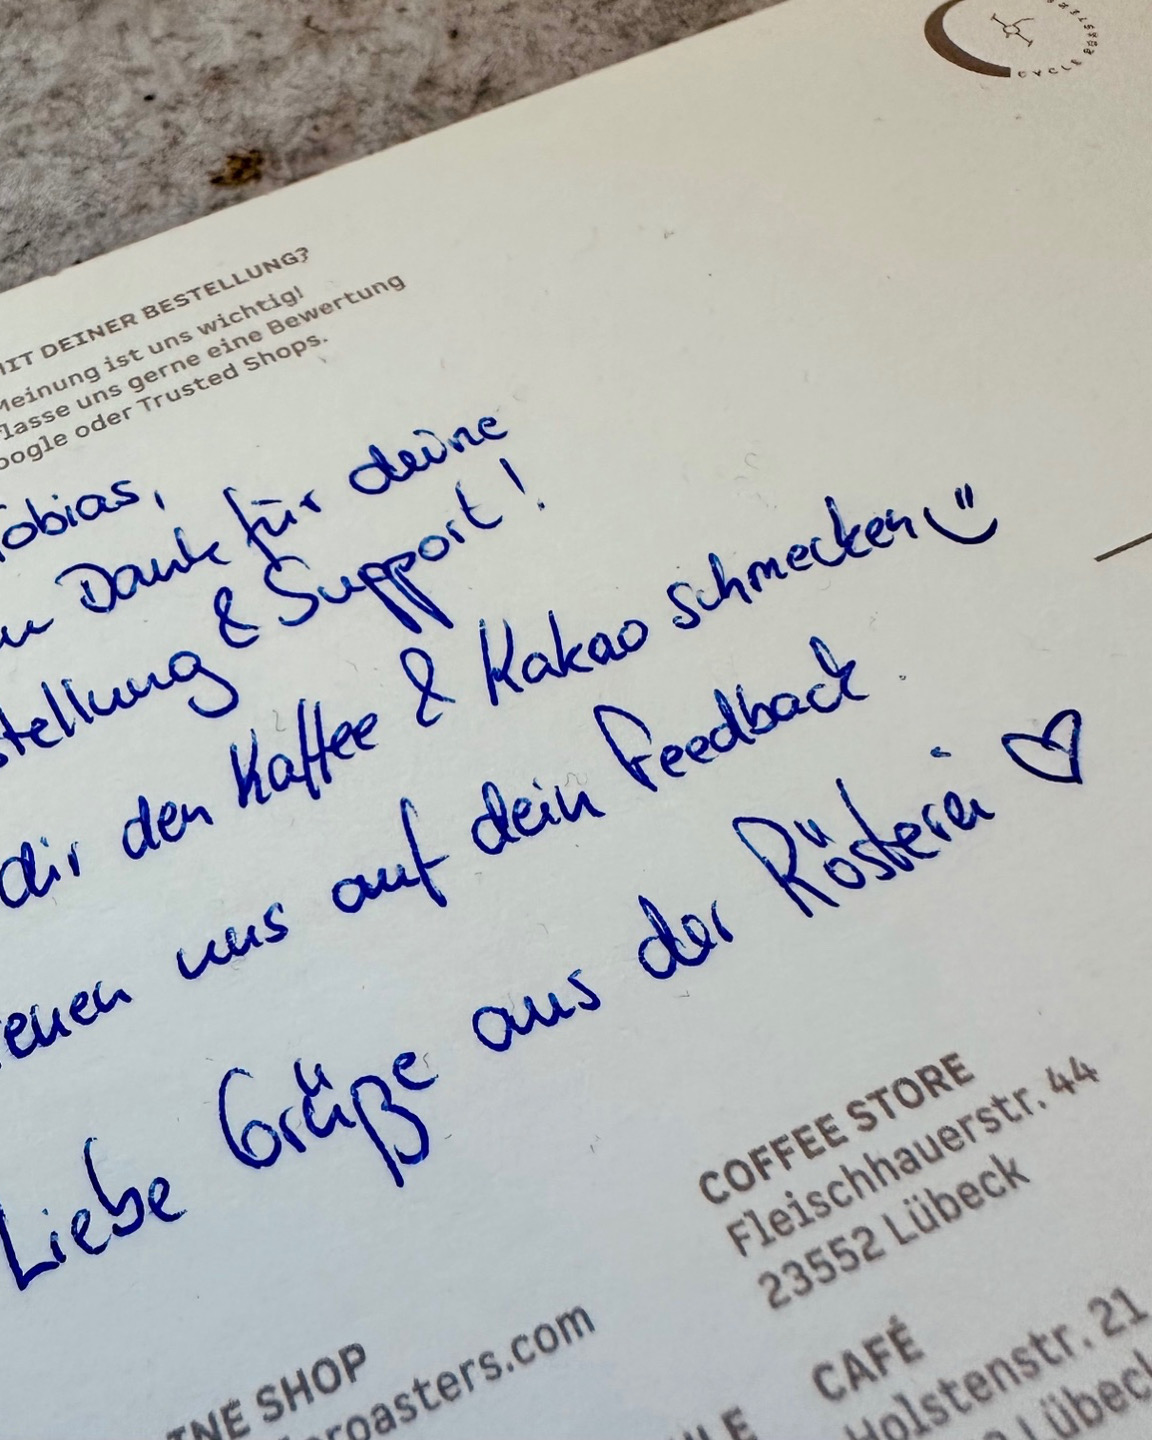 CYCLE ROASTERS
MIT DEINER BESTELLUNG?
Meinung ist uns wichtig!
lasse uns gerne eine Bewertung
oogle oder Trusted Shops.
Tobias,
Dank für deine
stellung & Support!
dir den Kaffee & Kakao schmecken
euen uns auf dein Feedback.
Liebe Grüße aus der Rösterei ♡
COFFEE STORE
Fleischhauerstr. 44
23552 Lübeck
INE SHOP
eroasters.com
CAFÉ
Holstenstr. 21
Lübeck